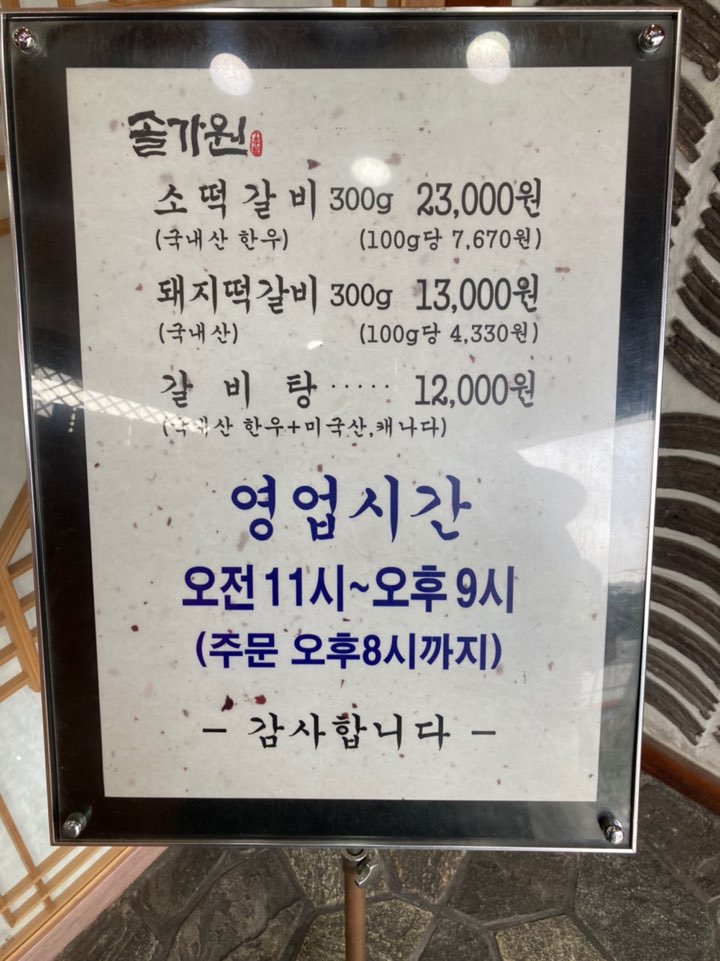 솔가원
소떡갈비 300g 23,000원
(국내산 한우) (100g당 7,670원)
돼지떡갈비 300g 13,000원
(국내산) (100g당 4,330원)
갈비탕 ····· 12,000원
(국내산 한우+미국산,캐나다)
영업시간
오전 11시~오후 9시
(주문 오후8시까지)
- 감사합니다 -